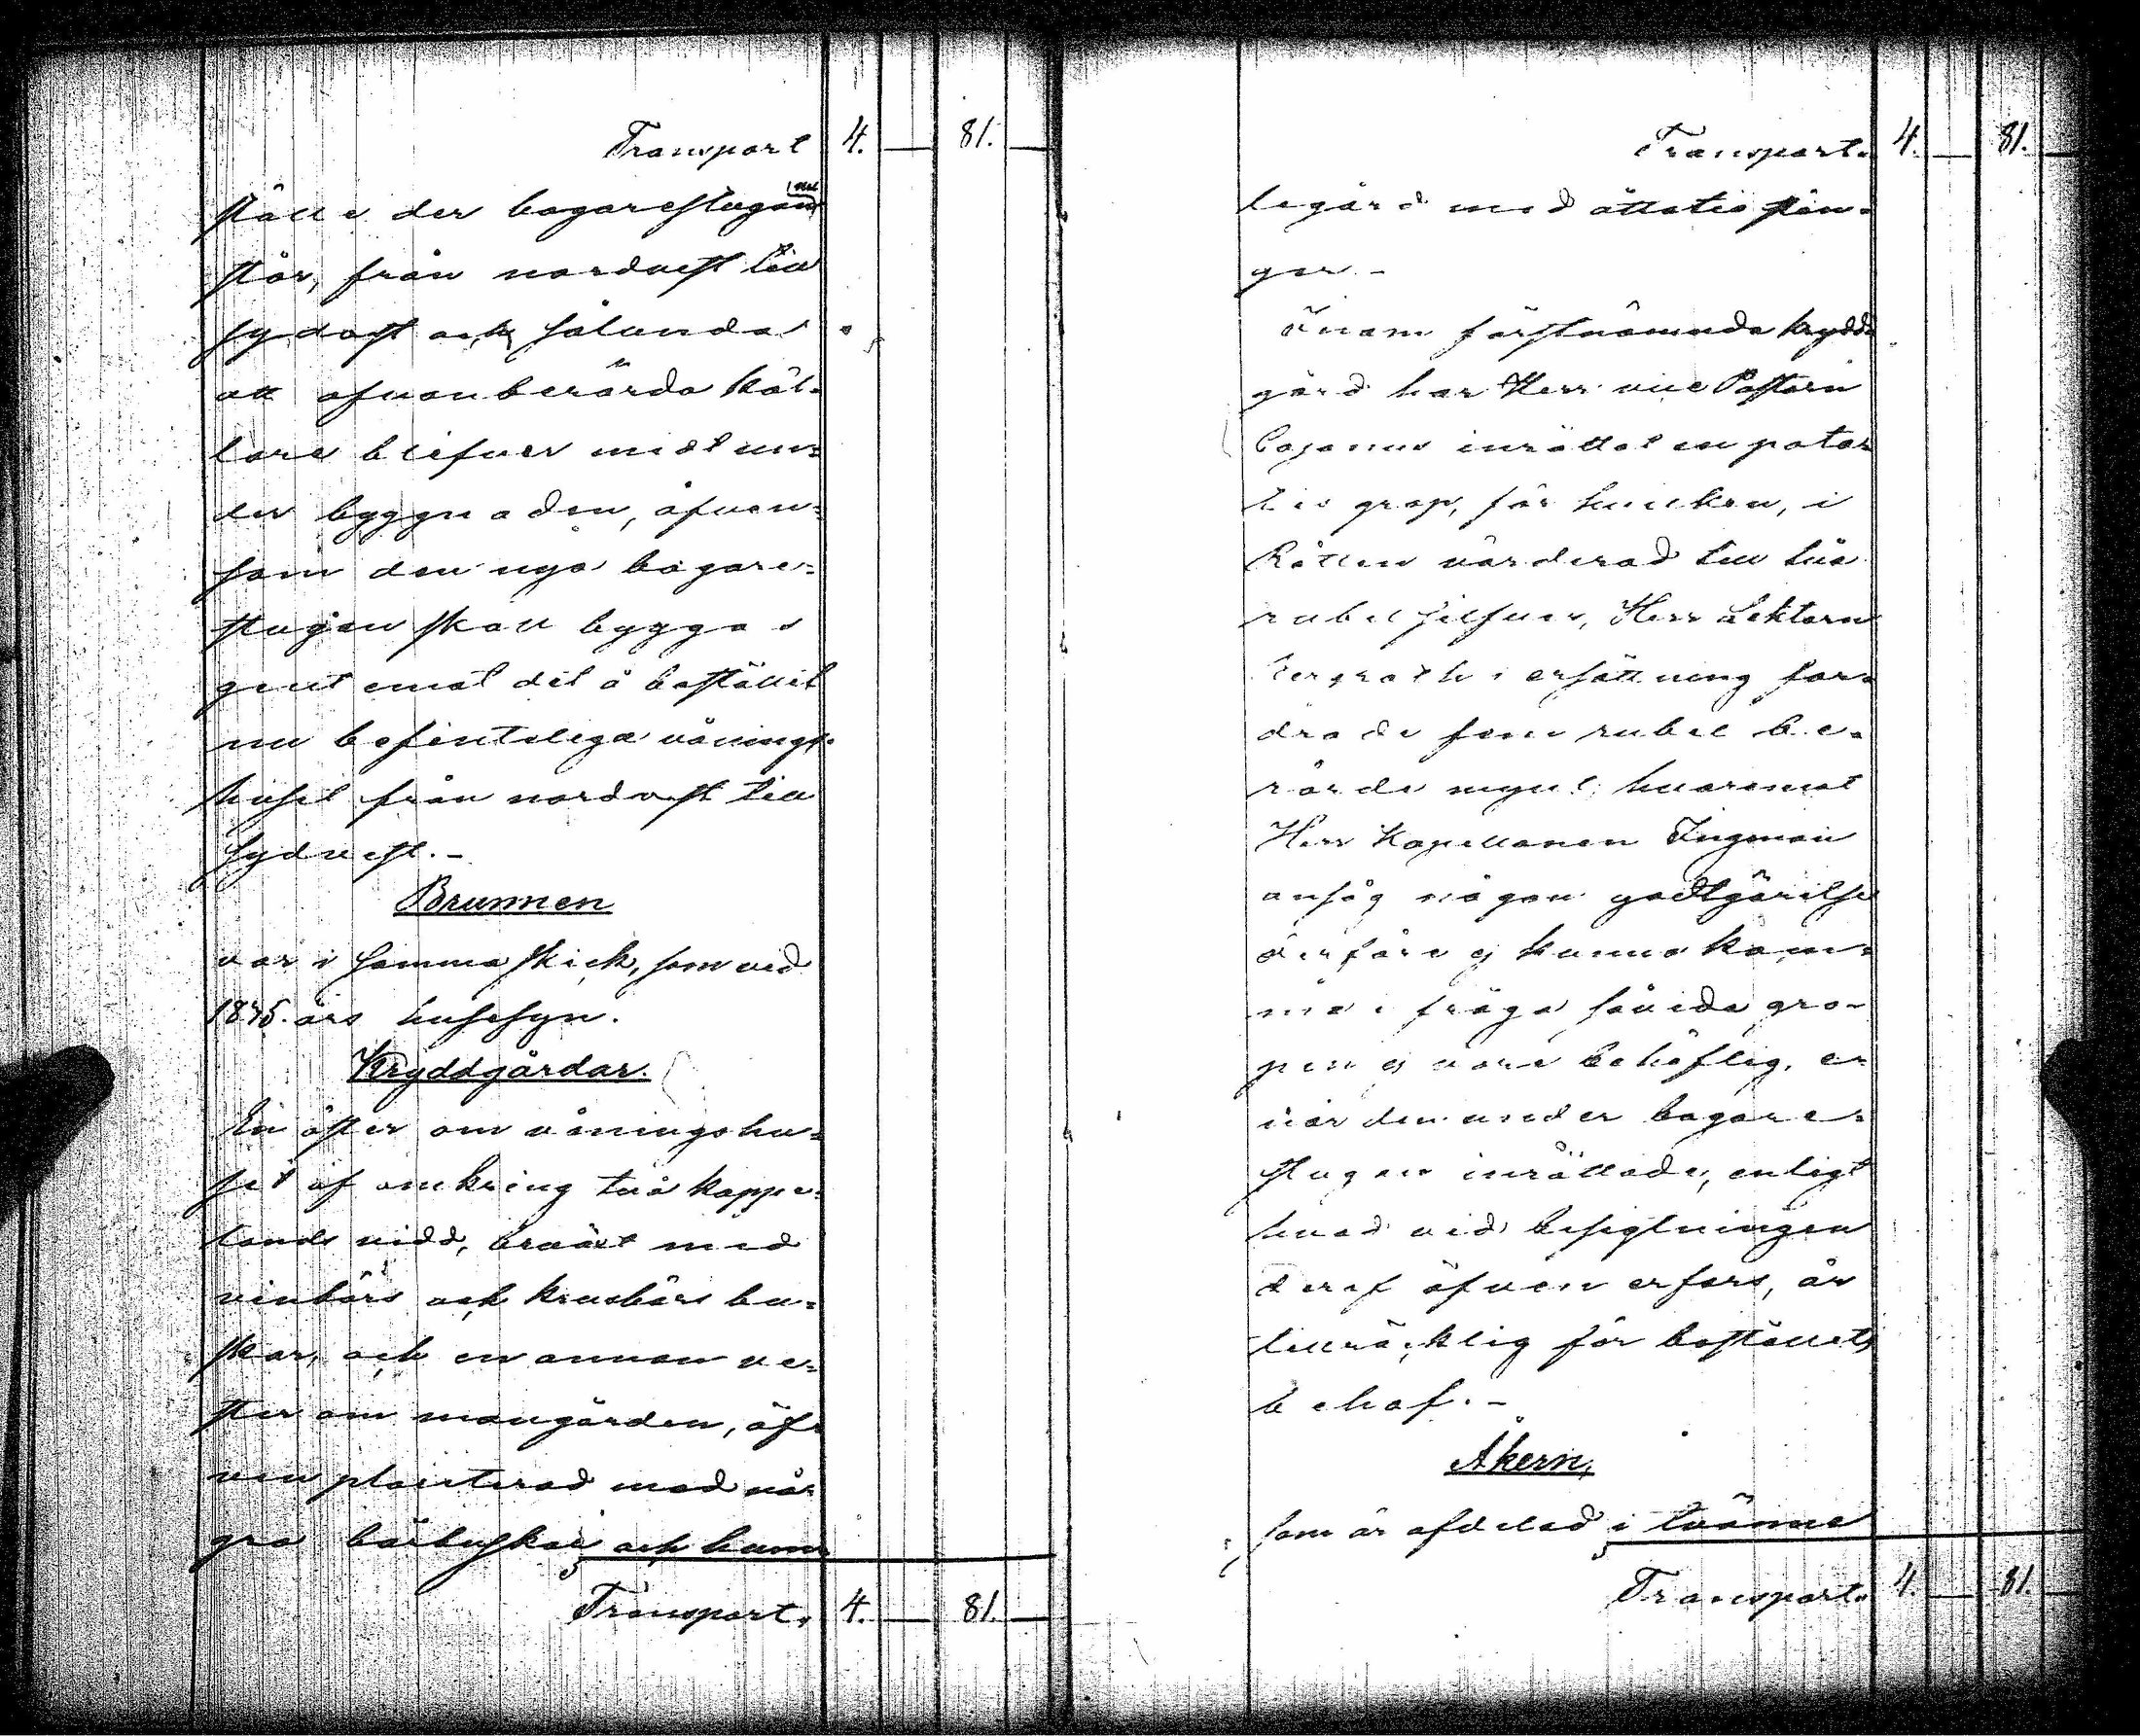 Transport 4. — 81. —
ställe der bagarestugan nu
står, från nordvest till
sydost och sålunda
att ofvanberörda käl-
lare blifver midt un-
der byggnaden, äfven-
som den nya bagare-
stugan skall byggas
gent emot det å bostället
nu befinteliga vånings-
huset från nordost till
sydvest. —
Brunnen
var i samma skick, som vid
1845 års husesyn.
Kryddgårdar.
En öster om våningshu-
set af omkring två kappe-
lands vidd, beväxt med
vinbärs och krusbärs bu-
skar, och en annan ve-
ster om mangården, äf-
ven planterad med nå-
gra bärbuskar och hum-
Transport. 4. — 81. —
Transport. 4. — 81. —
legård med åttatio stän-
ger. —
Inom förstnämnda krydd
gård har Herr vice Pastorn
Cajanus inrättat en potä-
tis grop, för hvilken, i
Rätten värderad till två
rubel silfver, Herr Lektorn
Bergroth i ersättning for-
drade fem rubel be-
rörde mynt; hvaremot
Herr Kapellanen Ingman
ansåg någon godtgörelse
derföre ej kunna kom-
ma i fråga såvida gro-
pen ej vore behöflig, e-
när den under bagare-
stugan inrättade, enligt
hvad vid besigtningen
deraf äfven erfors, är
tillräcklig för boställets
behof. —
Åkern,
som är afdelad i tvänne
Transport. 4. — 81. —